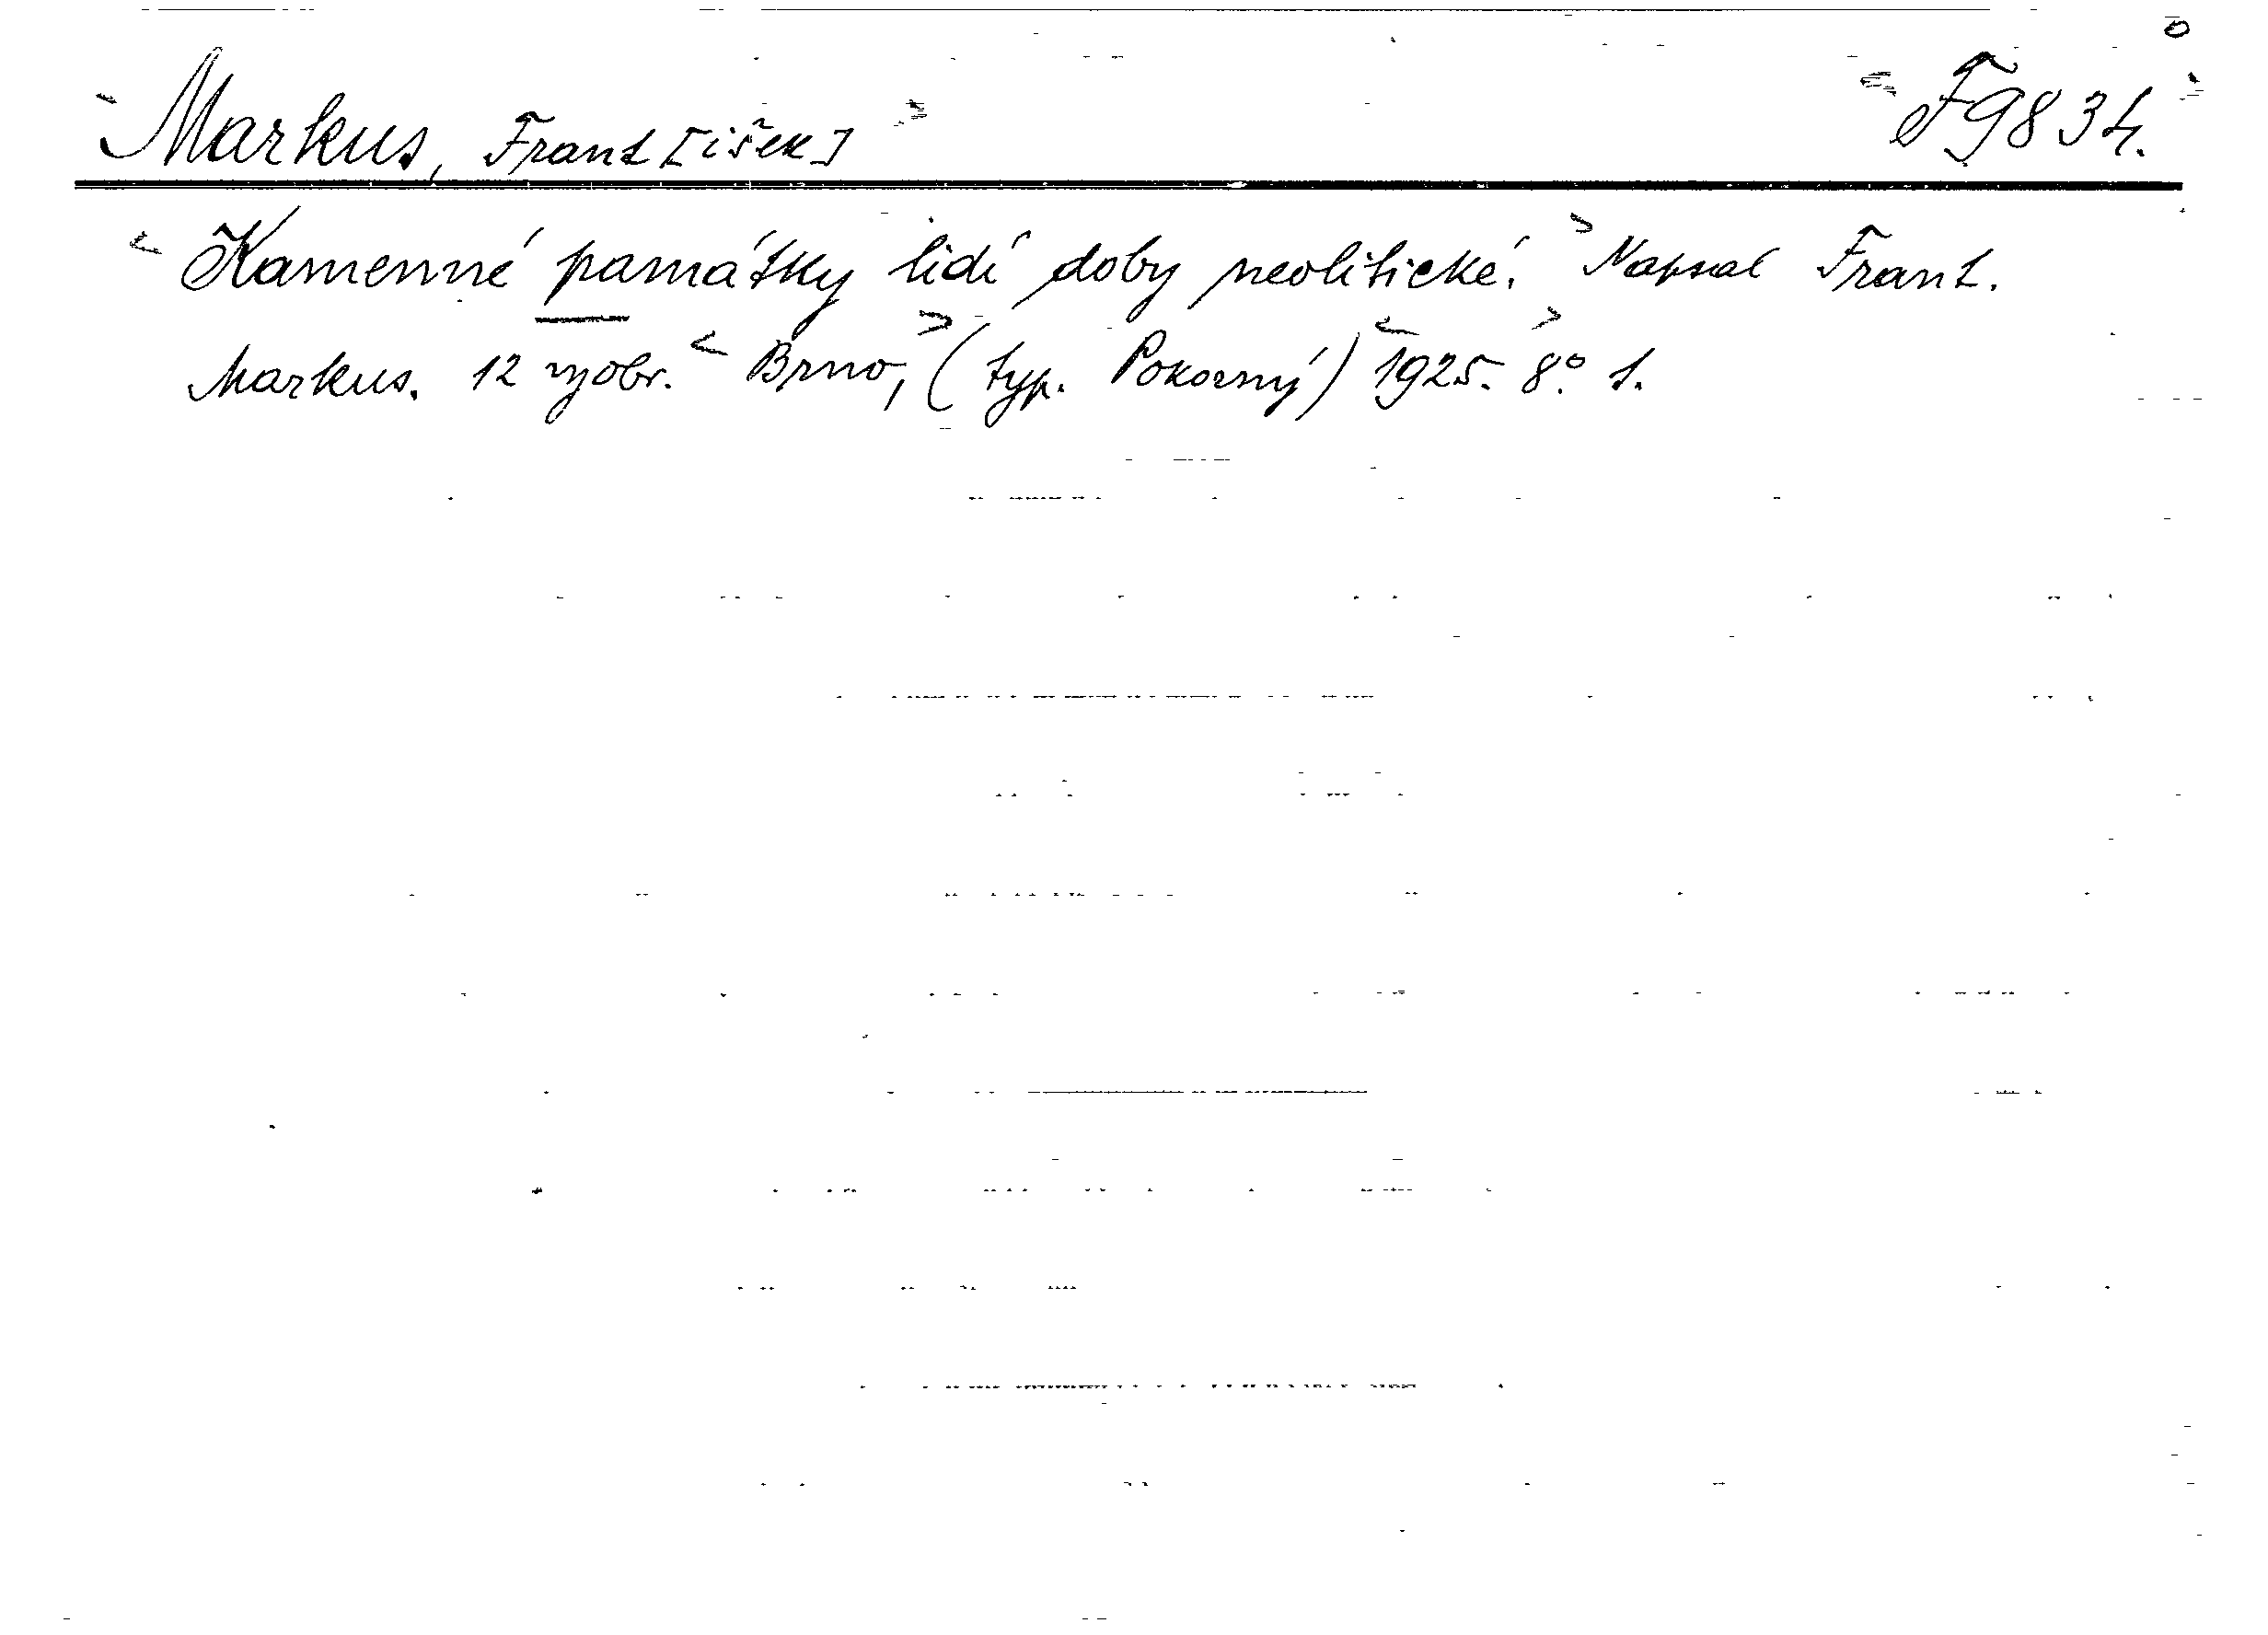 Markus, Frant[išek] F 9834.
Kamenné památky lidí doby neolitické. Napsal Frant.
Markus. 12 vyobr. Brno, (typ. Pokorný) 1925. 8° 1.